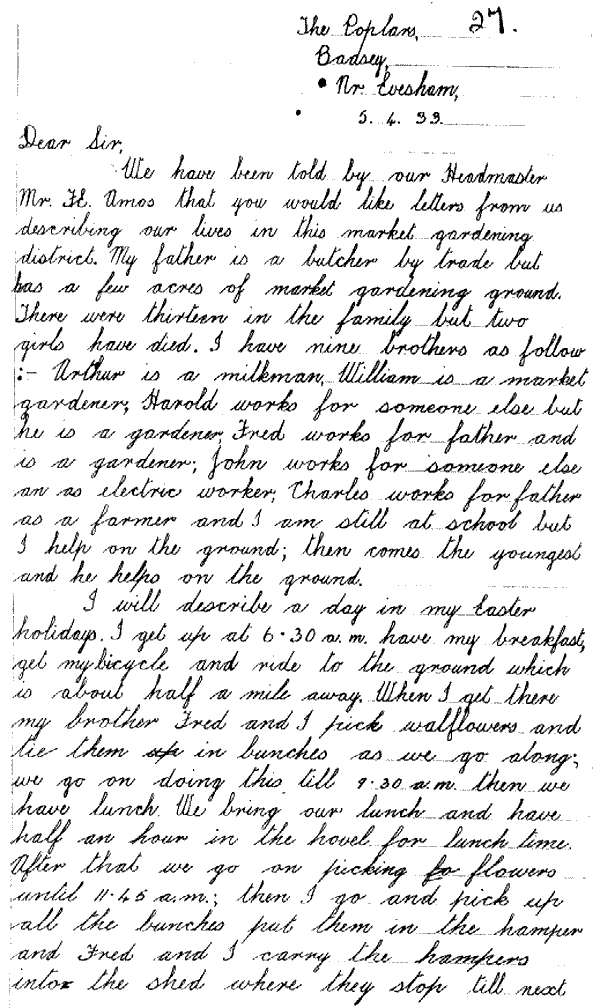 27.
The Poplars,
Badsey,
Nr. Evesham,
5. 4. 33.
Dear Sir,
We have been told by our Headmaster
Mr. F.E. Amos that you would like letters from us
describing our lives in this market gardening
district. My father is a butcher by trade but
has a few acres of market gardening ground.
There were thirteen in the family but two
girls have died. I have nine brothers as follow
:- Arthur is a milkman, William is a market
gardener; Harold works for someone else but
he is a gardener, Fred works for father and
is a gardener; John works for someone else
an as electric worker; Charles works for father
as a farmer and I am still at school but
I help on the ground; then comes the youngest
and he helps on the ground.
I will describe a day in my Easter
holidays. I get up at 6.30 a.m. have my breakfast,
get my bicycle and ride to the ground which
is about half a mile away. When I get there
my brother Fred and I pick walflowers and
tie them up in bunches as we go along;
we go on doing this till 9.30 a.m. then we
have lunch. We bring our lunch and have
half an hour in the hovel for lunch time.
After that we go on picking fo flowers
until 11.45 a.m.; then I go and pick up
all the bunches put them in the hamper
and Fred and I carry the hampers
into the shed where they stop till next